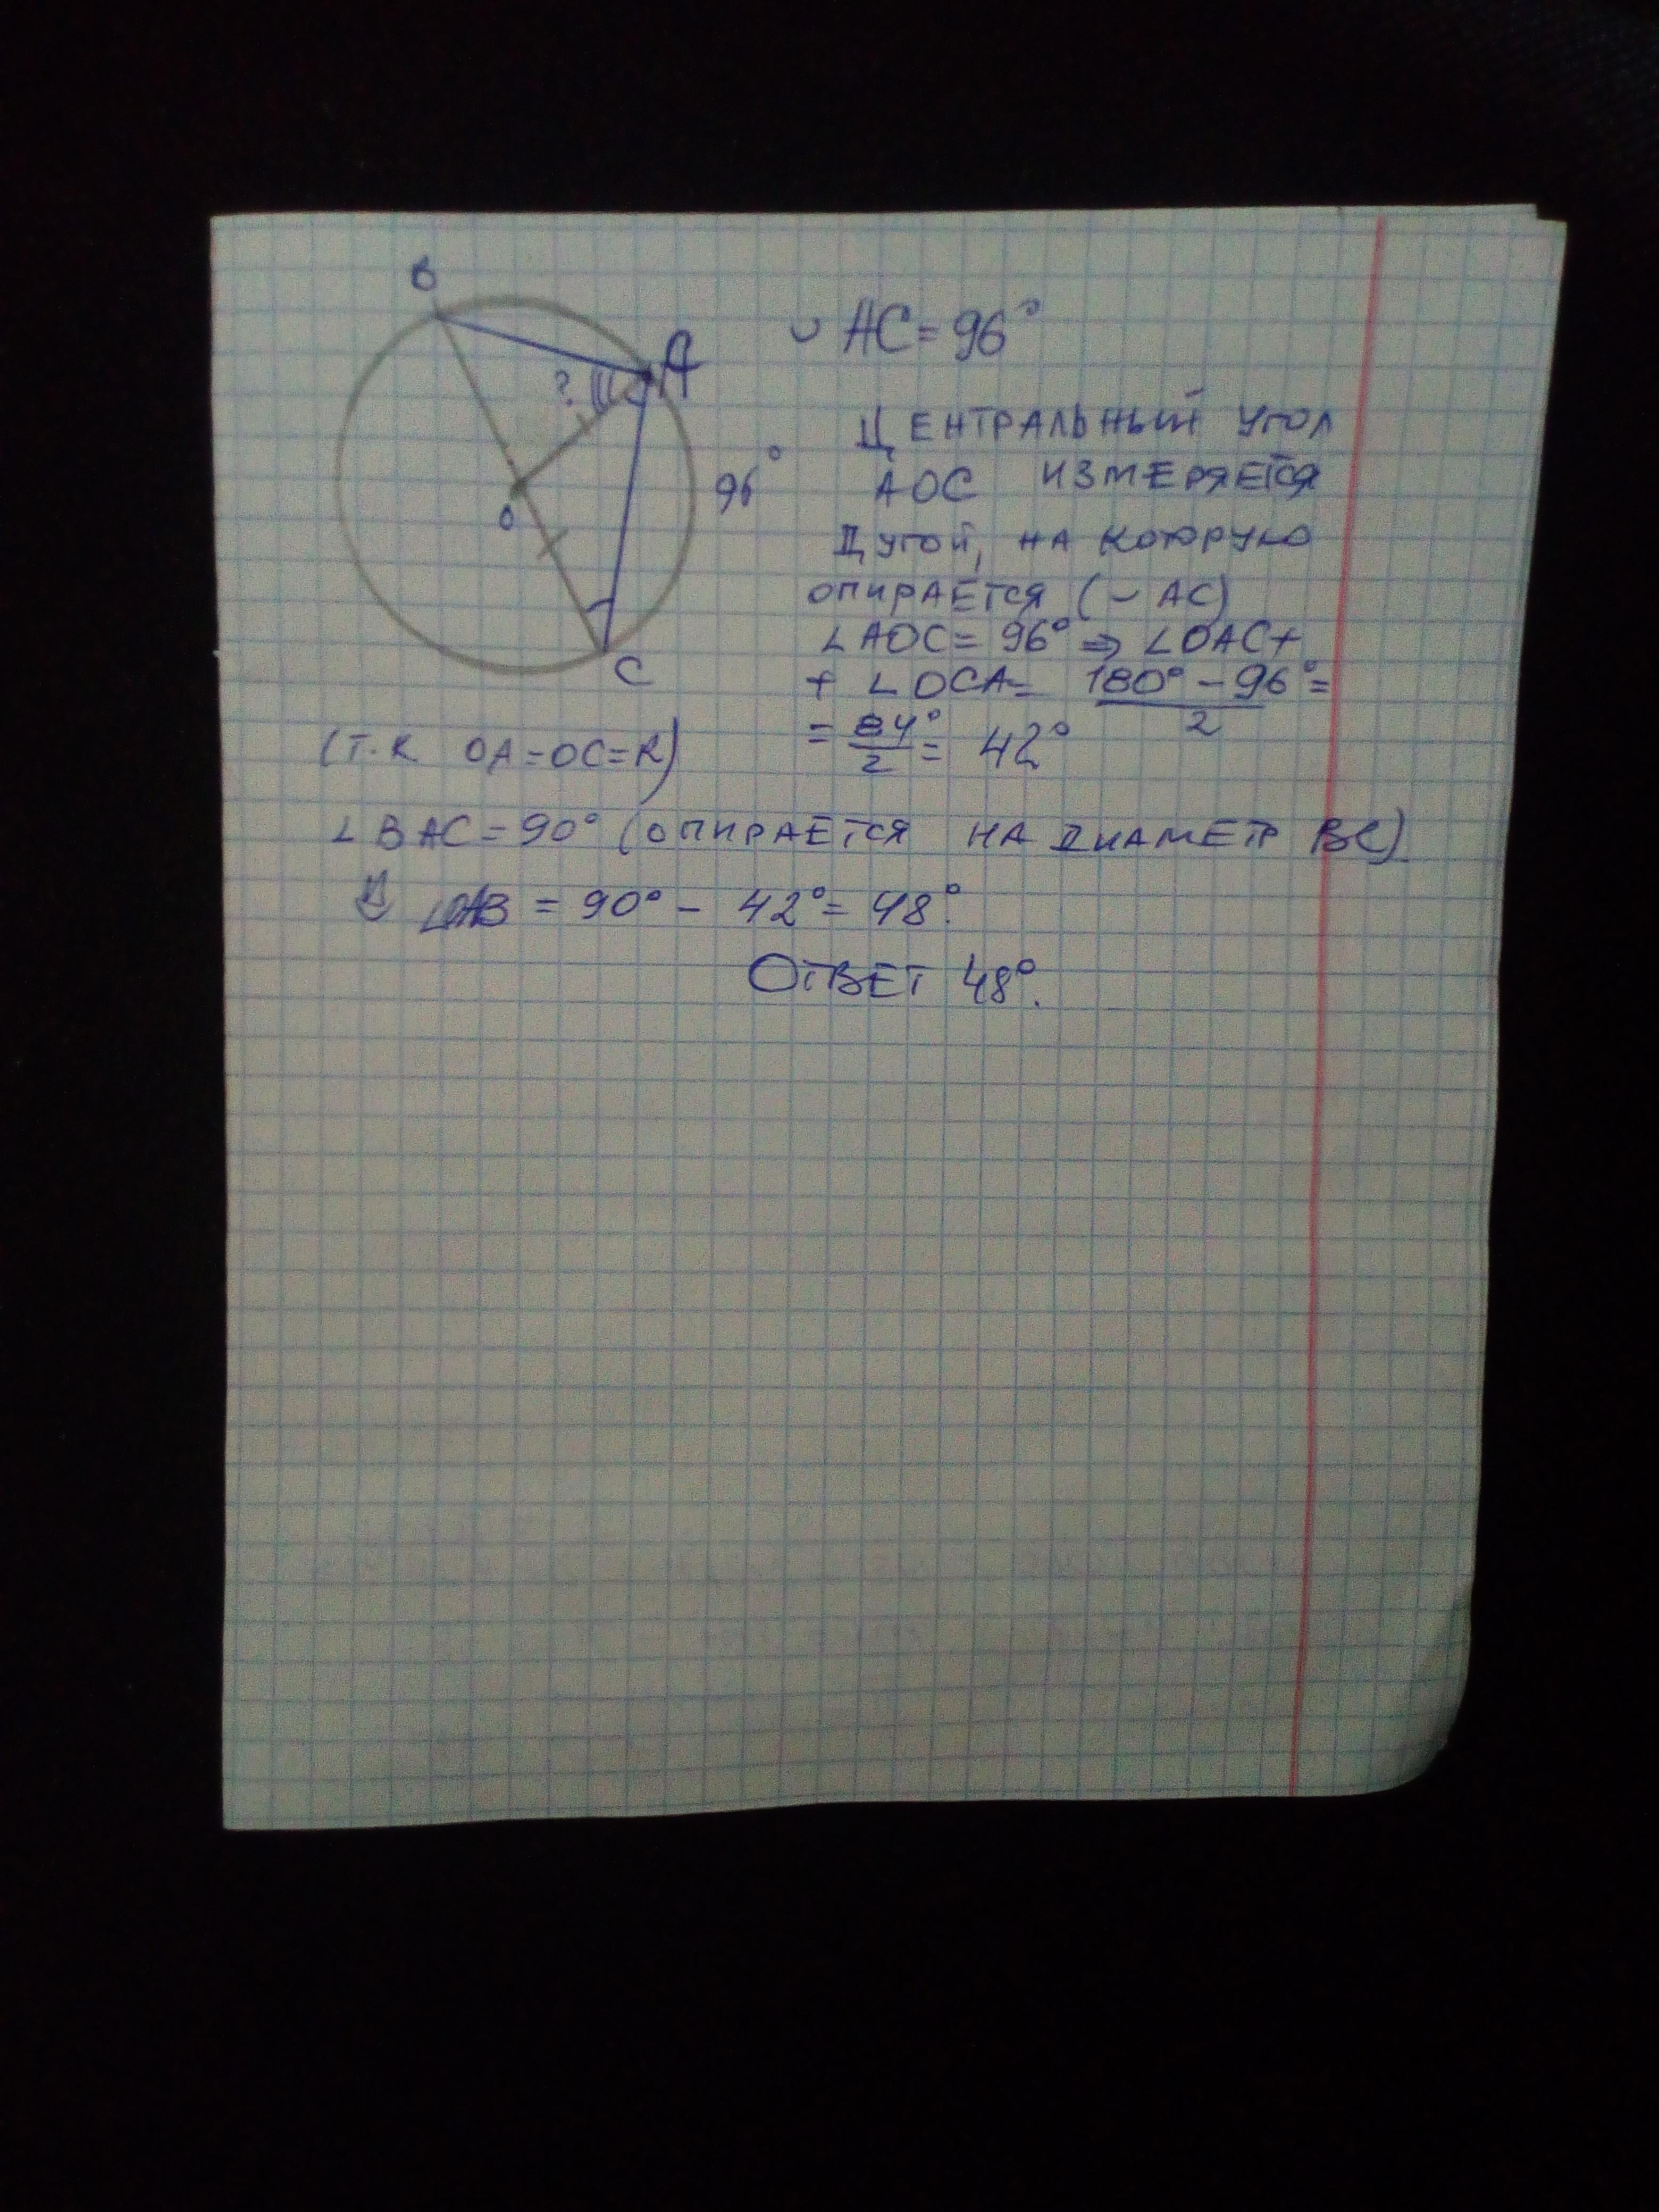 B
A
?
96°
O
C
◡ AC = 96°
ЦЕНТРАЛЬНЫЙ УГОЛ
AOC ИЗМЕРЯЕТСЯ
ДУГОЙ, НА КОТОРУЮ
ОПИРАЕТСЯ (◡ AC)
∠AOC = 96° ⇒ ∠OAC +
+ ∠OCA = (180° - 96°)/2 =
= 84°/2 = 42°
(Т.К OA = OC = R)
∠BAC = 90° (ОПИРАЕТСЯ НА ДИАМЕТР BC)
⇓ ∠OAB = 90° - 42° = 48°.
ОТВЕТ 48°.